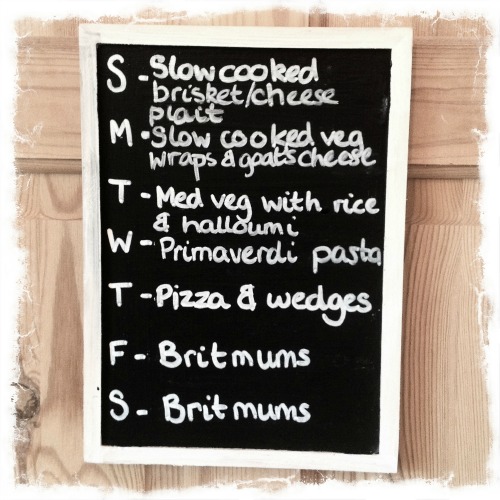 S - Slow cooked
brisket/cheese
plait
M - Slow cooked veg
wraps & goats cheese
T - Med veg with rice
& halloumi
W - Primaverdi pasta
T - Pizza & wedges
F - Britmums
S - Britmums